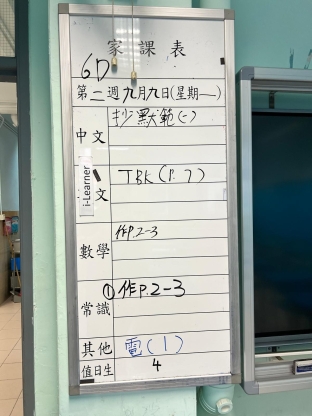 家課表
6D
第二週九月九日(星期一)
中文 抄默範(一)
i-Learner
文 TBK(P.7)
數學 作P.2-3
常識 ①作P.2-3
其他 電(1)
值日生 4